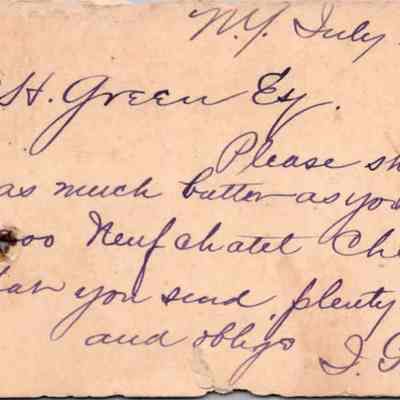 N.Y. July
H. Green Esq.
Please sh
as much butter as you
00 Neufchatel Che
you send plenty
and oblige J.